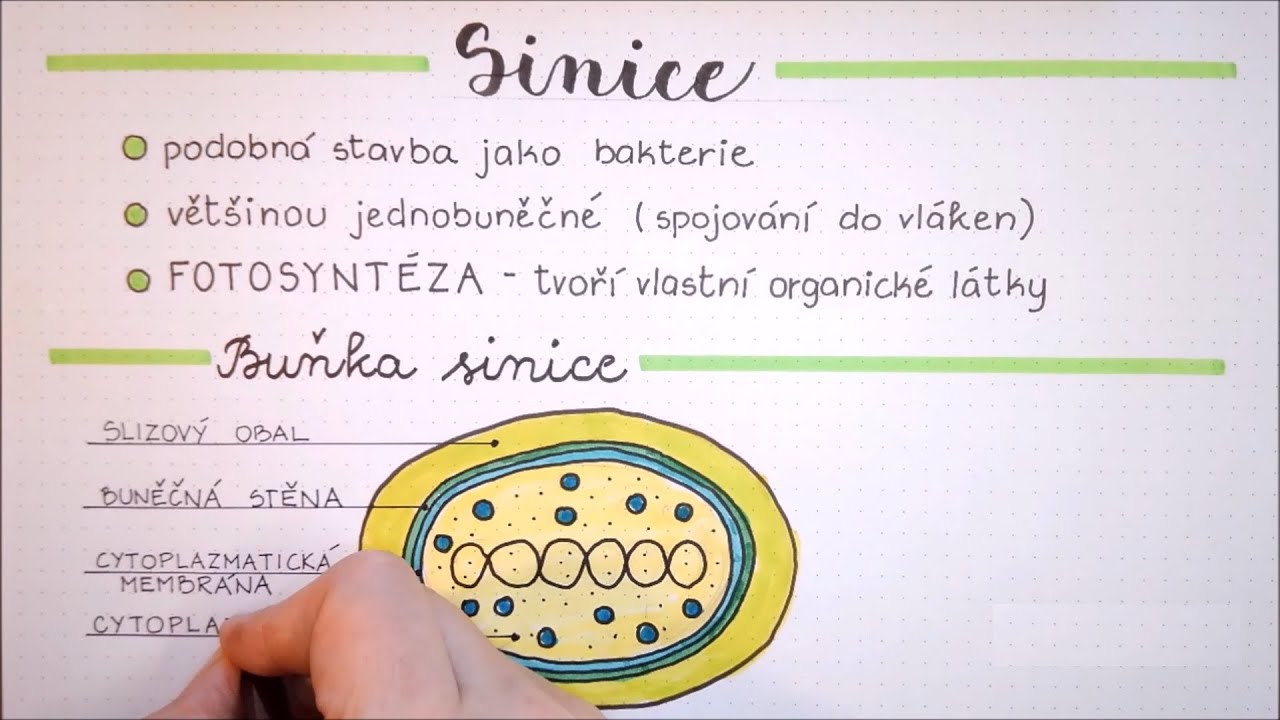 Sinice
podobná stavba jako bakterie
většinou jednobuněčné (spojování do vláken)
FOTOSYNTÉZA - tvoří vlastní organické látky
Buňka sinice
SLIZOVÝ OBAL
BUNĚČNÁ STĚNA
CYTOPLAZMATICKÁ
MEMBRÁNA